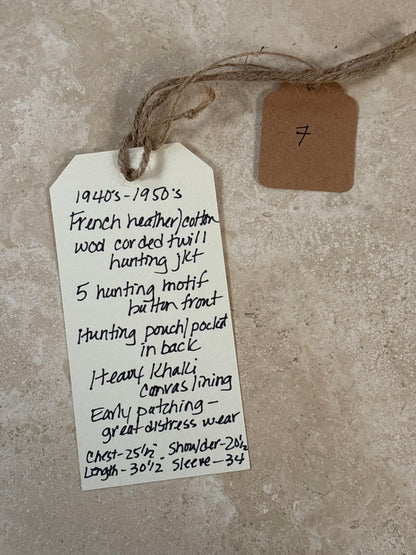 1940's-1950's
French heather/cotton
wool corded twill
hunting jkt
5 hunting motif
button front
Hunting pouch/pocket
in back
Heavy Khaki
canvas lining
Early patching -
great distress wear
Chest-25½" - Shoulder-20½
Length-30½ Sleeve-34
7